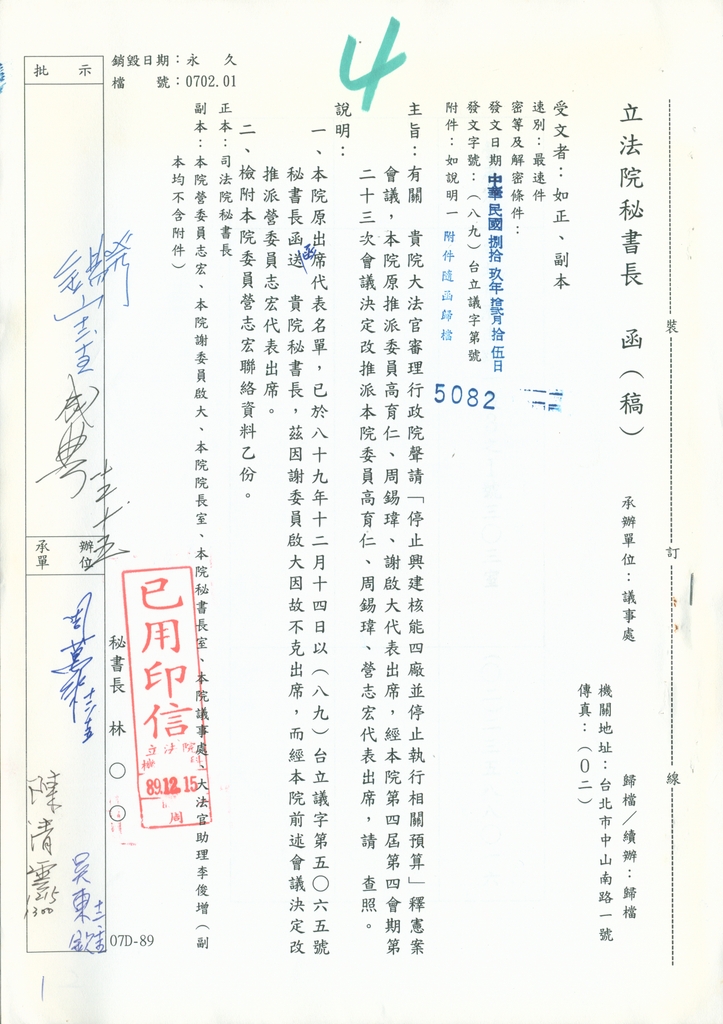 4
裝
訂
線
立法院秘書長　函（稿）
承辦單位：議事處
歸檔／續辦：歸檔
機關地址：台北市中山南路一號
傳真：（０二）
受文者：如正、副本
速別：最速件
密等及解密條件：
發文日期中華民國捌拾玖年拾貳月拾伍日
發文字號：（八九）台立議字第號
5082
附件：如說明一　附件隨函歸檔
主旨：有關　貴院大法官審理行政院聲請「停止興建核能四廠並停止執行相關預算」釋憲案
會議，本院原推派委員高育仁、周錫瑋、謝啟大代表出席，經本院第四屆第四會期第
二十三次會議決定改推派本院委員高育仁、周錫瑋、營志宏代表出席，請　查照。
說明：
一、本院原出席代表名單，已於八十九年十二月十四日以（八九）台立議字第五〇六五號
秘書長函送　貴院秘書長，茲因謝委員啟大因故不克出席，而經本院前述會議決定改
推派營委員志宏代表出席。
二、檢附本院委員營志宏聯絡資料乙份。
正本：司法院秘書長
副本：本院營委員志宏、本院謝委員啟大、本院院長室、本院秘書長室、本院議事處、大法官助理李俊增（副
本均不含附件）
秘書長　林　○　○
已用印信
立法院
89.12.15
周
銷毀日期：永　久
檔　　號：0702.01
批　示
承辦
單位
周萬來
陳清雲
1215
1300
吳東欽
07D-89
1